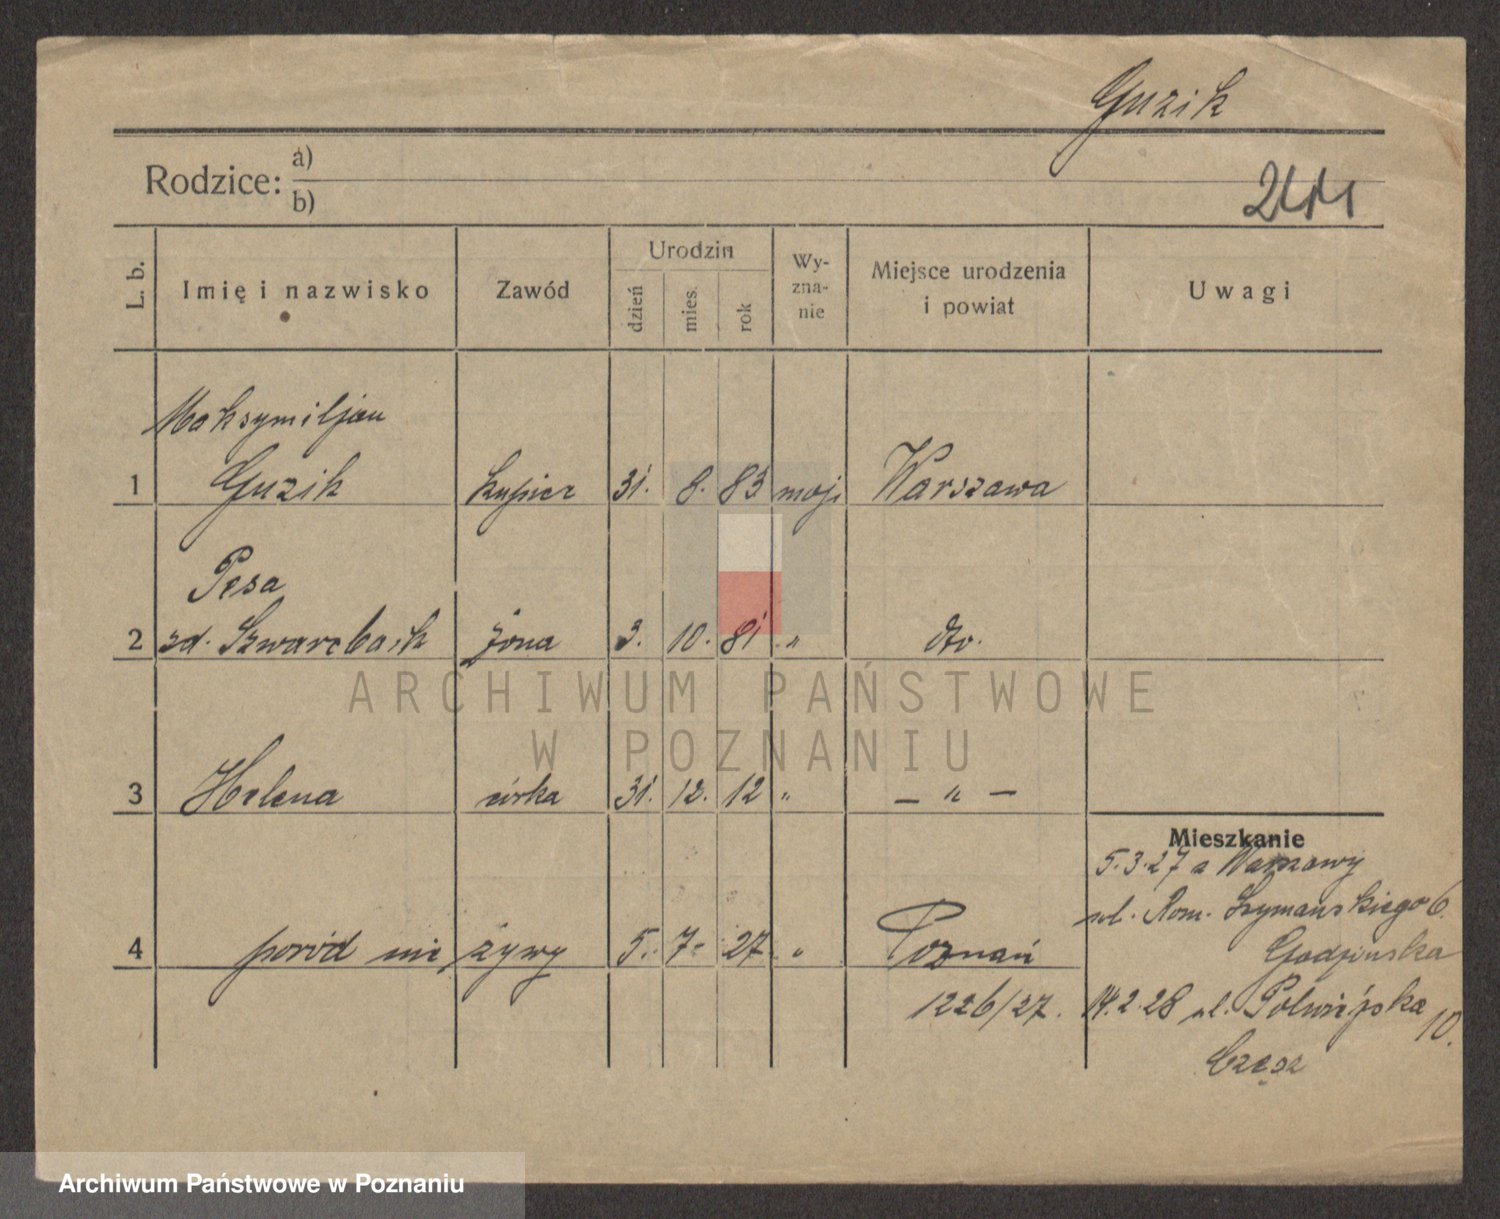 Guzik
Rodzice: a)
b)
2411
L. b.
Imię i nazwisko
Zawód
Urodzin
dzień
mies.
rok
Wy-
zna-
nie
Miejsce urodzenia
i powiat
Uwagi
Maksymiljan
1 Guzik kupiec 31. 8. 83 mojż Warszawa
Pesa
2 zd. Szwarcbach żona 3. 10. 81 " dto.
3 Helena córka 31. 12. 12 " — " —
Mieszkanie
5.3.27 a Warszawy
ul. Rom. Szymańskiego 6.
4 poród nie żywy 5. 7. 27. " Poznań
1226/27.
14.2.28 ul. Półwiejska 10.
ARCHIWUM PAŃSTWOWE
W POZNANIU
Archiwum Państwowe w Poznaniu